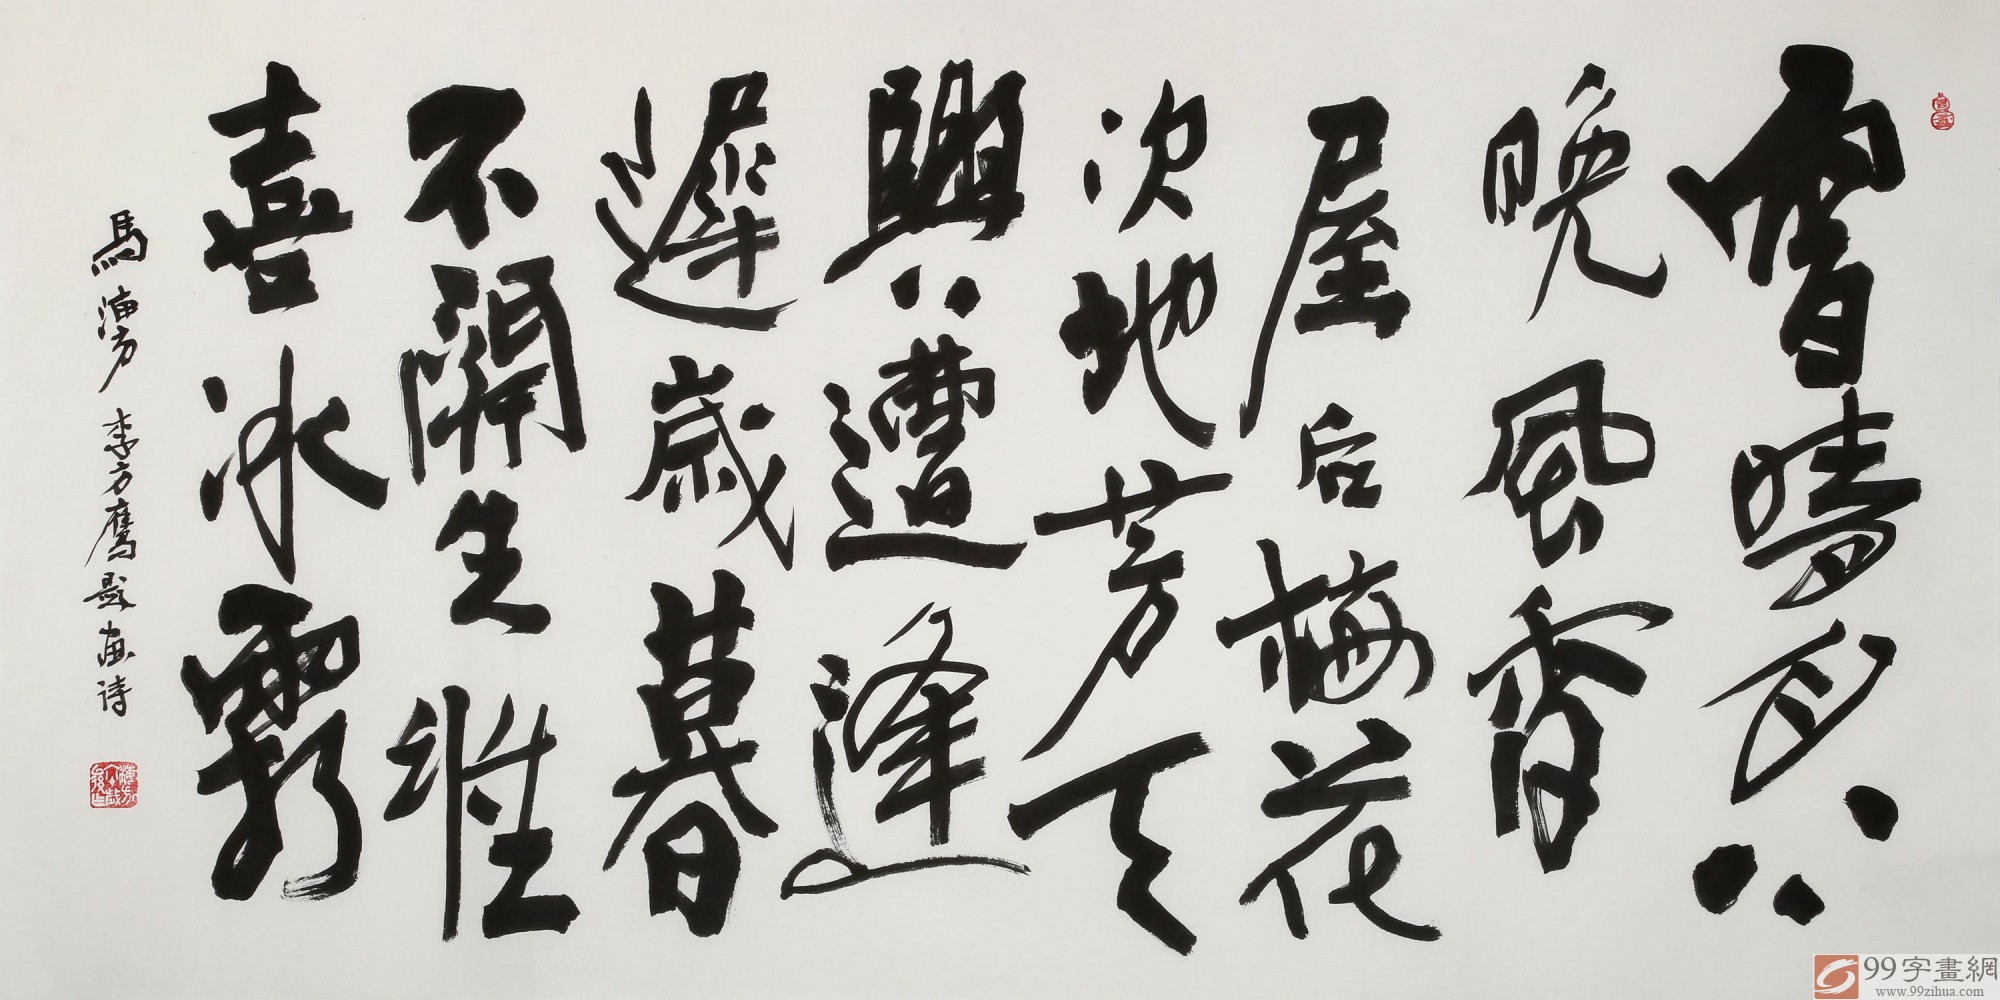 雪晴月
晚風香
屋后梅花
次地芳天
與遭逢
遲歲暮
不關生性
喜冰霜
馬海方 李方鷹题画诗
99字畫網
www.99zihua.com